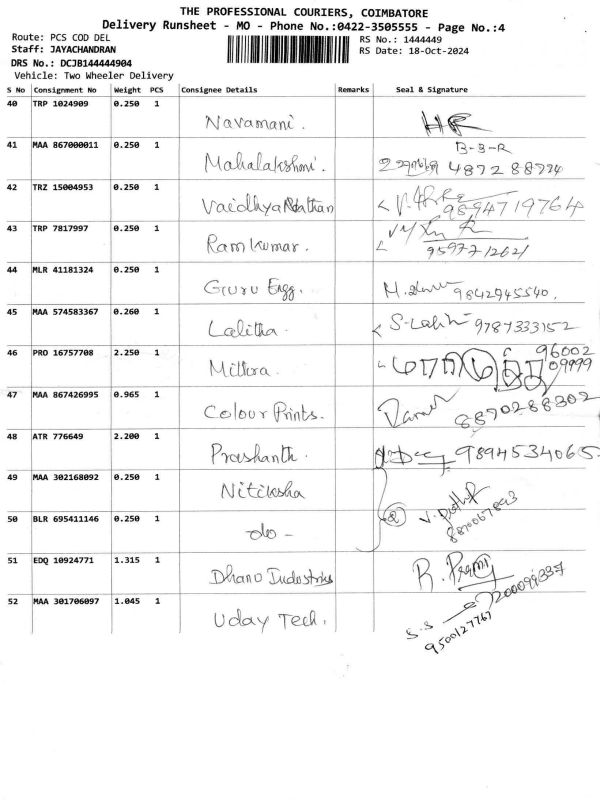 THE PROFESSIONAL COURIERS, COIMBATORE
Delivery Runsheet - MO - Phone No.:0422-3505555 - Page No.:4
Route: PCS COD DEL
RS No.: 1444449
Staff: JAYACHANDRAN
RS Date: 18-Oct-2024
DRS No.: DCJB144444904
Vehicle: Two Wheeler Delivery
S No Consignment No Weight PCS Consignee Details Remarks Seal & Signature
40 TRP 1024909 0.250 1 Navamani.
41 MAA 867000011 0.250 1 Mahalakshmi. B-B-R
42 TRZ 15004953 0.250 1 Vaidhyanathan 9894719764
43 TRP 7817997 0.250 1 Ramkumar. 9597712621
44 MLR 41181324 0.250 1 Guru Engg. 9842945540.
45 MAA 574583367 0.260 1 Lalitha. S-Lalith 9787333152
46 PRO 16757708 2.250 1 Mithra. 96002 09999
47 MAA 867426995 0.965 1 Colour Prints. 8870288302
48 ATR 776649 2.200 1 Prashanth. 9894534065
49 MAA 302168092 0.250 1 Nitiksha
50 BLR 695411146 0.250 1 -do-
51 EDQ 10924771 1.315 1 Dhanu Industries
52 MAA 301706097 1.045 1 Uday Tech. S.S
9500127767